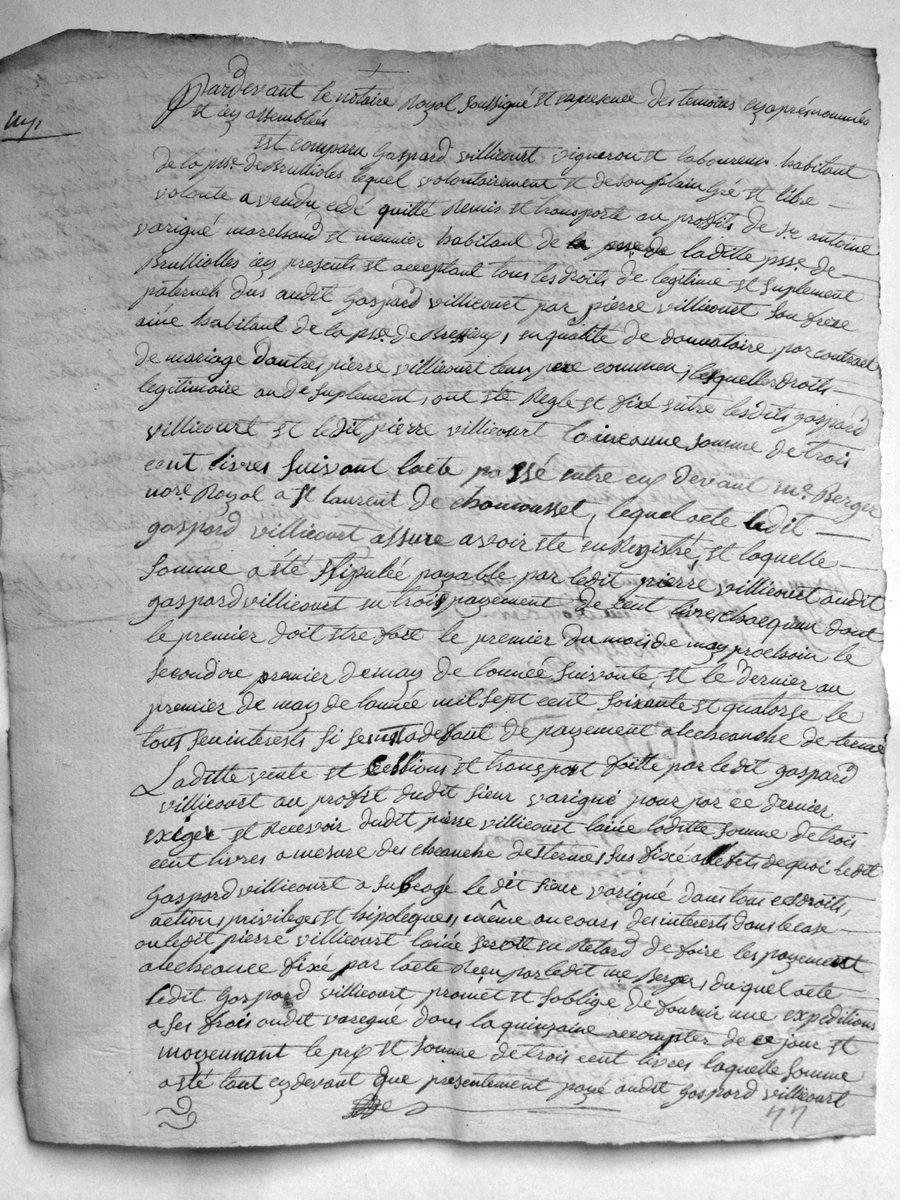 Pardevant le notaire Royal soussigné et en presence des temoins cy après nommés
et cy assemblés
est comparu Gaspard villicourt vigneron et laboureur habitant
de la psse. de Brullioles lequel volontairement et de son plain gré et libre
volonte a vendu cedé quitté Remis et transporté au proffit de sr. antoine
varigné marchand et meunier habitant de la psse de laditte psse. de
Brulliolles icy present et acceptant tous les droits de legitime et suplement
paternels dus audit Gaspard villicourt par pierre villicourt son frere
ainé habitant de la psse. de en qualité de donnataire par contract
de mariage dautre pierre villicourt leur pere commun, lesquelles droits
legitimaire ou de suplement, ont été Reglé et fixé entre lesdits gaspard
villicourt et ledit pierre villicourt somme de trois
cent livres suivant lacte passé entre eux devant me. Berger
nore. Royal a st laurent de chamousset, lequel acte ledit
gaspard villicourt assure avoir été enRegistré, et laquelle
somme a été stipulée payable par ledit pierre villicourt audit
gaspard villicourt en trois payement de cent livres chacquun dont
le premier doit etre fait le premier du mois de may prochain le
second au premier de may de lannée suivante, et le dernier au
premier de may de lannée mil sept cent soixante et quatorse le
tout sans interests si ce nest a deffaut de payement a lecheanche de terme
Laditte vente et cessions et transport faitte par ledit gaspard
villicourt au profit dudit sieur varigné pour par ce dernier
exiger et Recevoir dudit pierre villicourt lainé laditte somme de trois
cent livres a mesure des cheanche des termes sus fixé a leffets de quoi ledit
Gaspard villicourt a subrogé ledit sieur varigné dans tous ces droits,
action, privileges et hipoteques, même au cours des interests dans le cas
ou ledit pierre villicourt lainé seroit en Retard de faire les payement
a lecheance fixé par lacte Reçu par ledit me Berger, duquel acte
ledit Gaspard villicourt promet et soblige de fournir une expeditions
a ses frais audit varigné dans la quinzaine a compter de ce jour et
moyennant le prix et somme de trois cent livres laquelle somme
a été tant cy devant que presentement payé audit gaspard villicourt
77